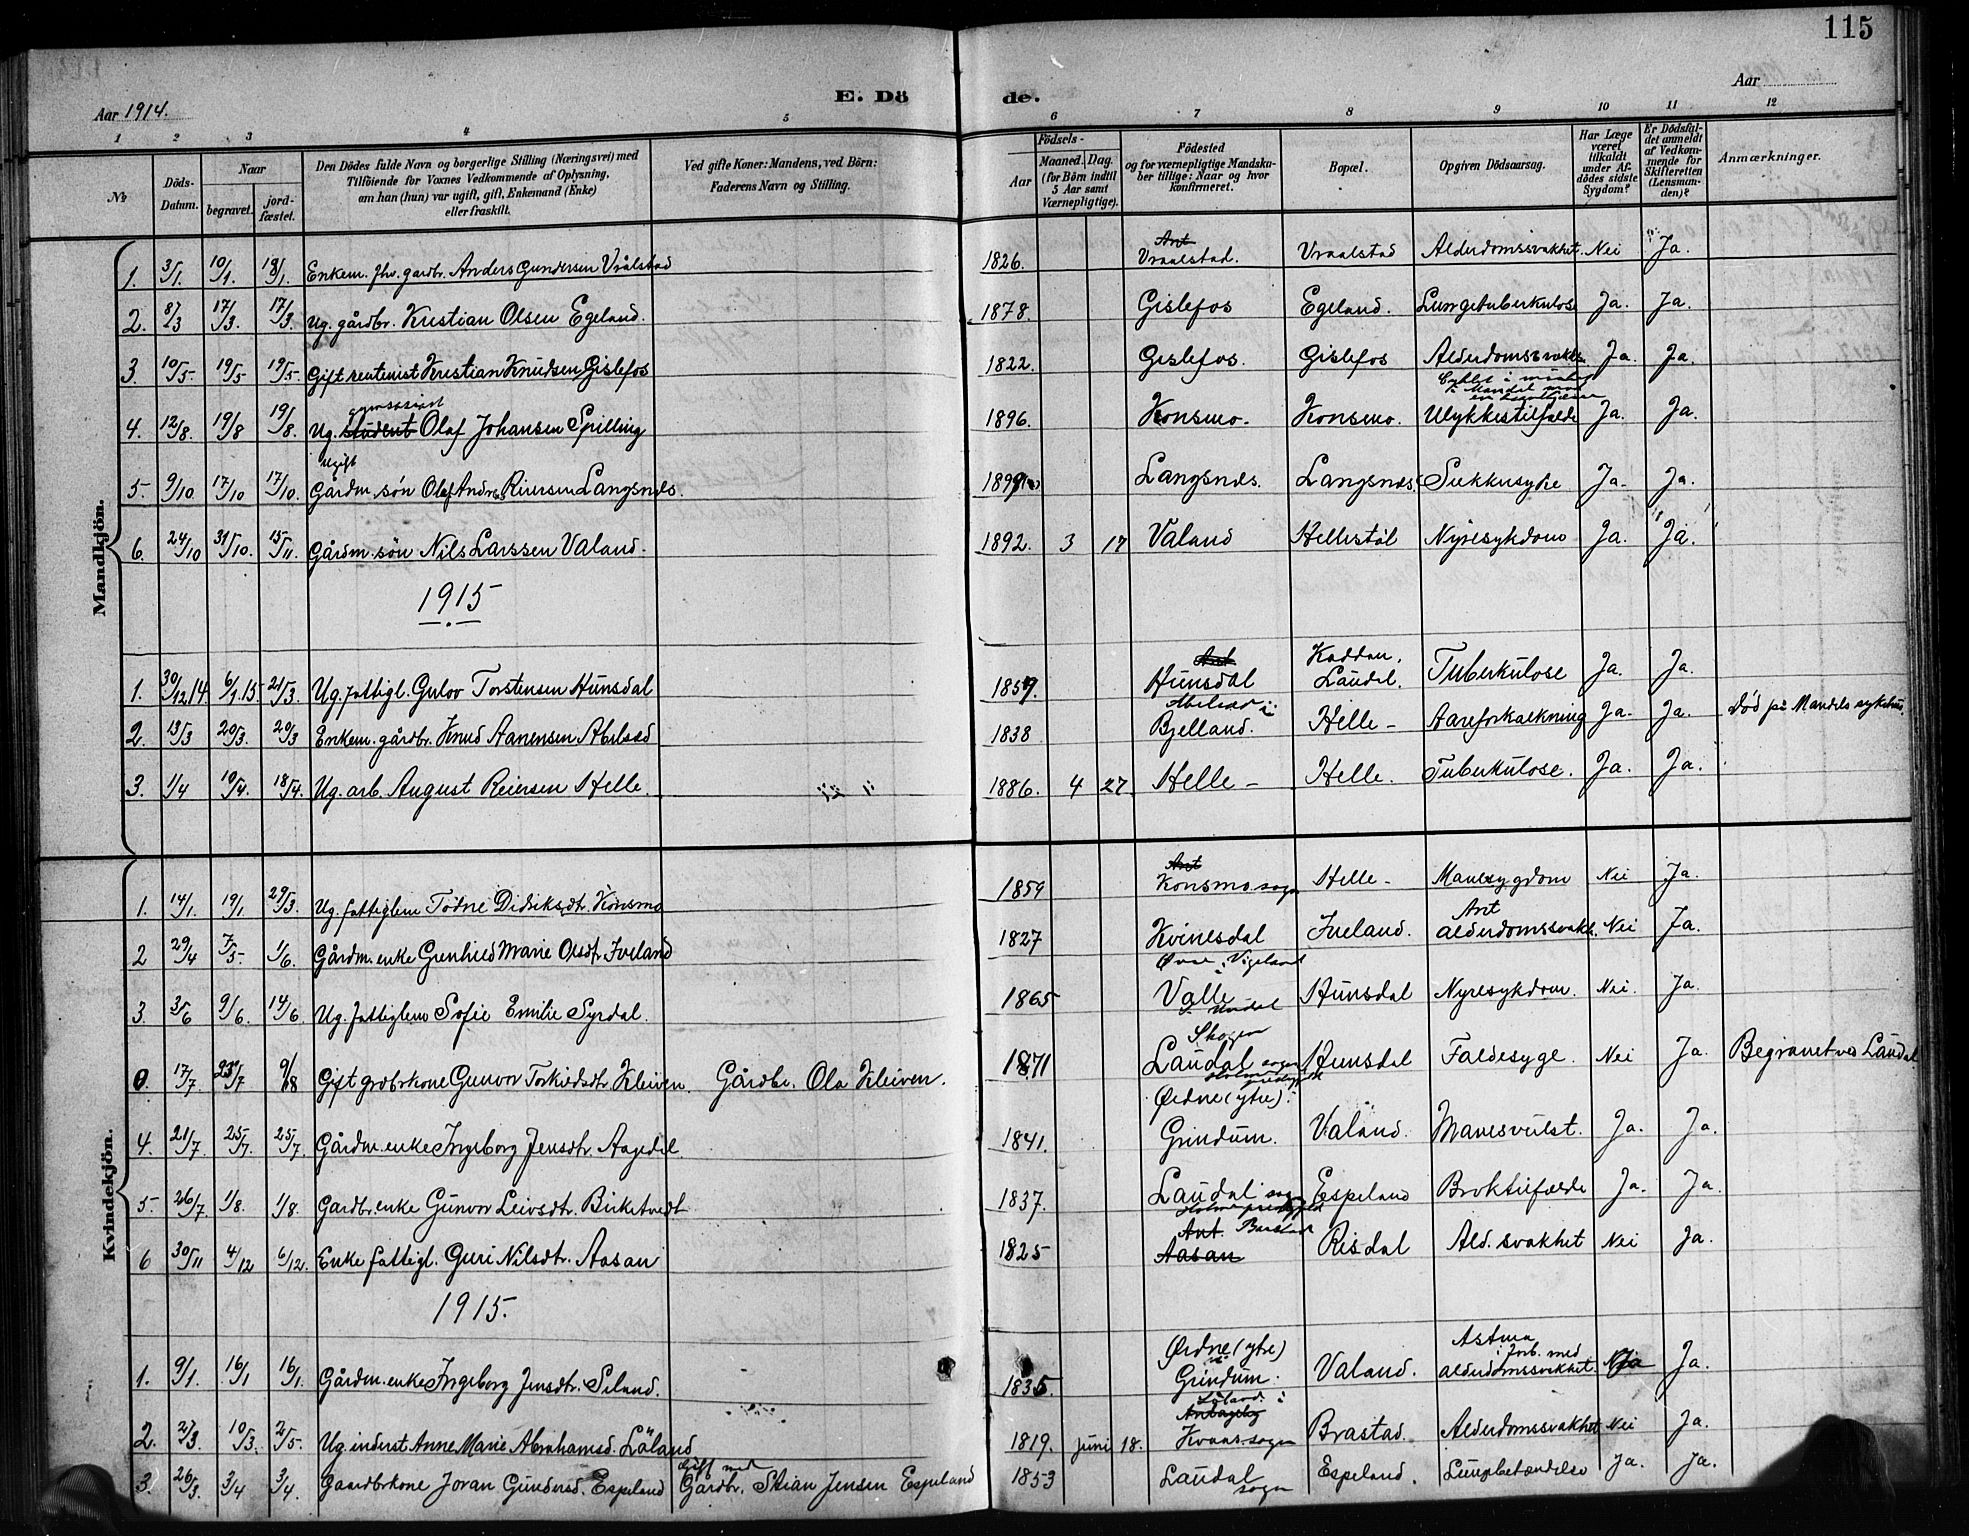 115
Aar 1914.
E. Dö de.
Aar
1 2 3 4 5 6 7 8 9 10 11 12
№
Döds-Datum.
Naar
begravet.
jord-fæstet.
Den Dödes fulde Navn og borgerlige Stilling (Næringsvei) med
Tilföiende for Voxnes Vedkommende af Oplysning,
om han (hun) var ugift, gift, Enkemand (Enke)
eller fraskilt.
Ved gifte Koner: Mandens, ved Börn:
Faderens Navn og Stilling.
Födsels-
Aar
Maaned. Dag.
(for Börn indtil
5 Aar samt
Værnepligtige).
Födested
og for værnepligtige Mandska-
ber tillige: Naar og hvor
konfirmeret.
Bopæl.
Opgiven Dödsaarsag.
Har Læge
været
tilkaldt
under Af-
dödes sidste
Sygdom?
Er Dödsfal-
det anmeldt
af Vedkom-
mende for
Skifteretten
(Lensman-
den)?
Anmærkninger.
Mandkjön.
1. 3/1. 10/1. 18/1. Enkem. fhv. gardbr. Anders Gundersen Vrålstad 1826. Vraalstad. Vraalstad Alderdomssvakhet. Nei Ja.
2. 8/3 17/3. 17/3. Ug. gårdbr. Kristian Olsen Egeland. 1878. Gislefos Egeland. Lungetuberkulose Ja. Ja.
3. 10/5. 19/5 19/5. Gift rentenist Kristian Knudsen Gislefos 1822. Gislefos. Gislefos Alderdomssvakh. Ja. Ja.
gymnasiast
4. 12/8. 19/8 19/8. Ug. student Olaf Johansen Spilling 1896. Konsmo. Konsmo. Ulykkestilfælde Ja. Ja.
Ugift
5. 9/10. 17/10 17/10. Gårdm. sön Olaf Andr. Reiersen Langsnæs. Langsnæs. Langsnæs. Sukkusyke Ja. Ja.
6. 24/10 31/10. 15/11. Gårdm. sön Nils Larssen Valand. 1892. 3 17 Valand Hellestöl Nyresykdom Ja. Ja.
1915
1. 30/12.14. 6/1.15. 21/3. Ug. fattigl. Gulov Torstensen Hunsdal 1859. Hunsdal Kaddan, Laudal. Tuberkulose Ja. Ja.
2. 13/3 20/3. 20/3 Enkem. gårdbr. Knud Aanensen Abelsæd 1838 Abelsæd i Bjelland. Helle - Aareforkalkning Ja. Ja. Död på Mandals sykehus.
3. 1/4 10/4. 18/4. Ug. arb. August Reiersen Helle. 1886. 4 27. Helle - Helle. Tuberkulose. Ja. Ja.
Kvindekjön.
1. 14/1. 19/1 29/3. Ug. fattiglem Tödne Didriksdt. Konsmo 1859 Konsmo sogn Helle - Mavesygdom Nei Ja.
2 29/4 7/5. 1/6. Gårdm. enke Grenhild Marie Olsdt. Iveland 1827 Kvinesdal Iveland. Ant alderdomssvakh. Nei Ja.
3. 3/6 9/6. 14/6 Ug. fattiglem Sofie Emilie Syrdal. 1865 Øvre Vigeland i Valle S. Undal Hunsdal Nyresykdom. Nei. Ja.
0. 17/7. 23/7 9/8 Gift grdbrkone Gunvor Torkildsdtr. Kleiven. Gårdbr. Ola Kleiven. 1871 Skogen Laudal sogn Hunsdal Faldesyge. Nei Ja. Begravet ved Laudal
4 21/7. 25/7. 25/7. Gårdm. enke Ingeborg Jensdtr. Aagedal. 1841. Ørdne (ytre) i Grindum. Valand. Mavesvulst. Ja. Ja.
5 26/7. 1/8. 1/8. Gardbr. enke Gunvor Leivsdtr. Birketvedt 1837. Laudal sogn Espeland Broktilfælde Ja. Ja.
6 30/11 4/12 6/12. Enke fattigl. Guri Nilsdtr. Aasan 1825 Ant. Aasan Risdal Ald. svakhet Nei Ja.
1915.
1. 9/1. 16/1 16/1. Gårdm. enke Ingeborg Jensdtr. Seland. 1835. Ørdne (ytre) Grindum. Valand. Astma i forb. med alderdomssvakhet Ja Ja.
2. 2/3 10/3. 2/5. Ug. inderst Anne Marie Abrahamsd. Löland 1819. Juni 18. Löland i Kvaas sogn Brastad. Alderdomssvakhet Nei Ja.
3. 26/3. 3/4 3/4. Gaardbrkone Joran Gundersd. Espeland Gift med Gårdbr. Stian Jensen Espeland 1853 Laudal sogn Espeland. Lungebetændelse Ja. Ja.